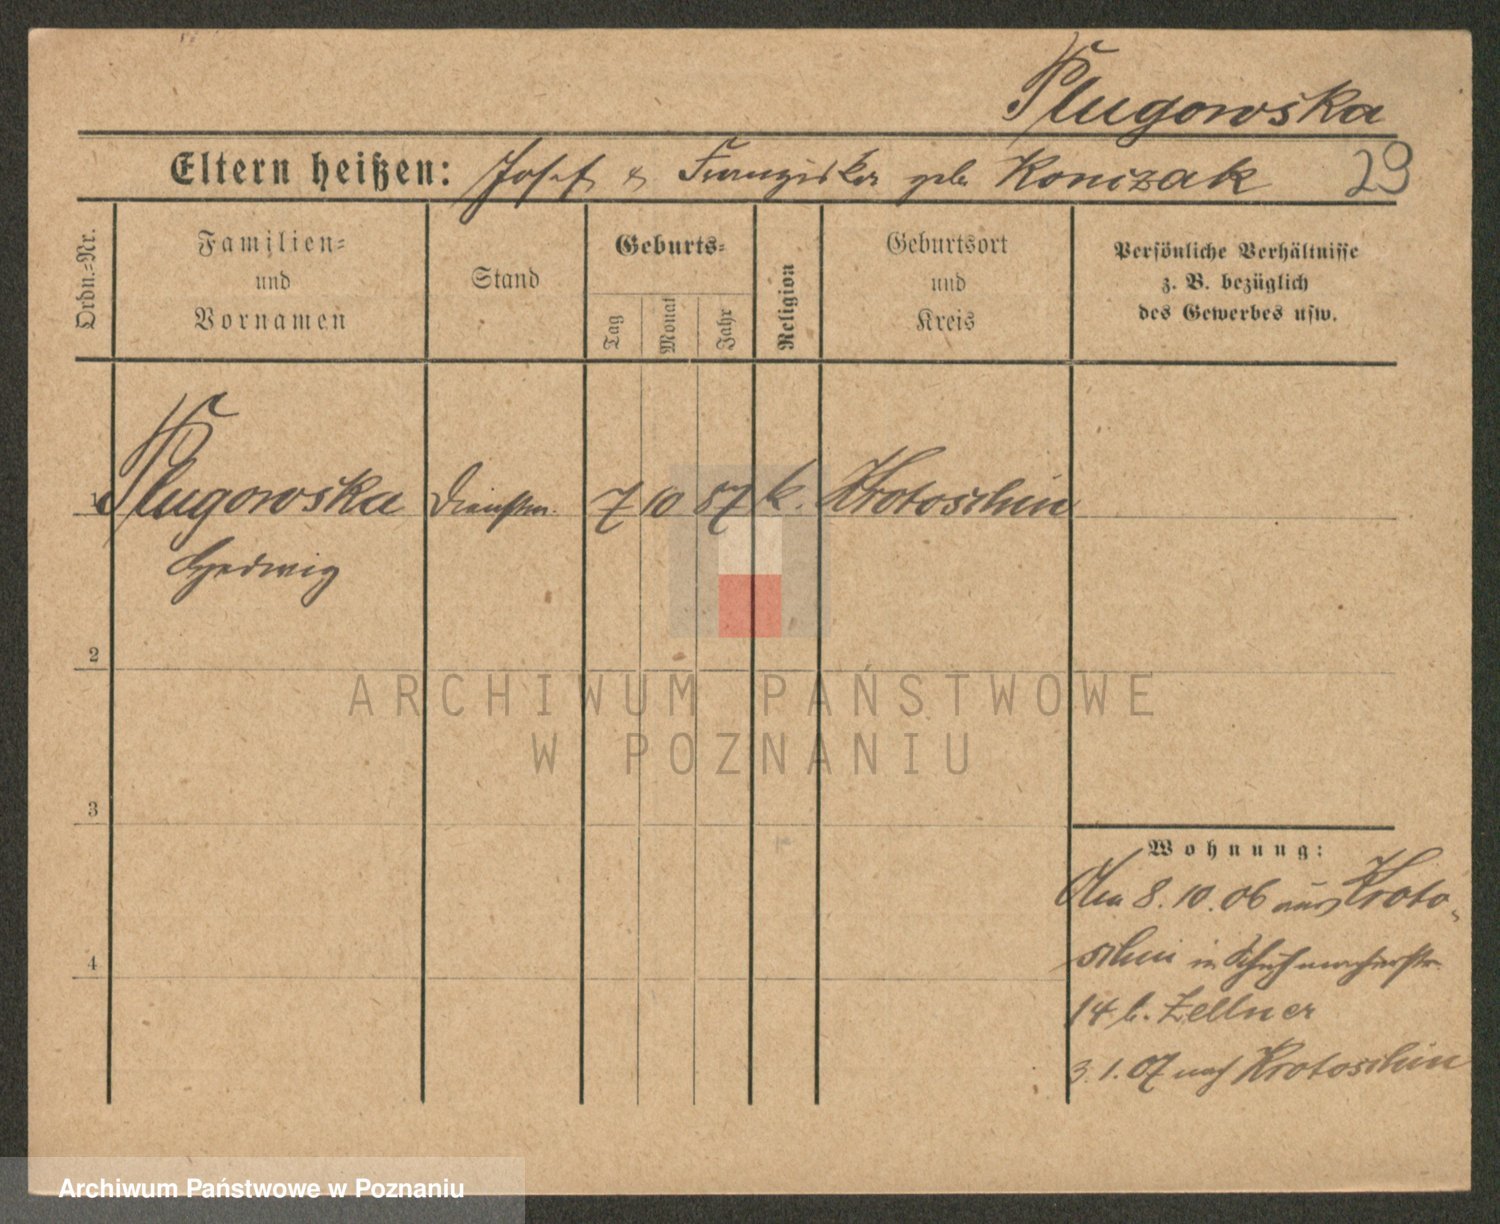 Plugowska
Eltern heißen: Josef & Franziska geb. Konczak 29
Ordn.=Nr.
Familien=
und
Vornamen
Stand
Geburts=
Tag
Monat
Jahr
Religion
Geburtsort
und
Kreis
Persönliche Verhältnisse
z. B. bezüglich
des Gewerbes usw.
1 Plugowska Dienstm. 7 10 87 k. Krotoschin
Hedwig
2
3
4
Wohnung:
8.10.06 aus Kroto-
schin in Schuhmacherstr.
14 b. Zellner
3.1.07 nach Krotoschin
ARCHIWUM PAŃSTWOWE
W POZNANIU
Archiwum Państwowe w Poznaniu